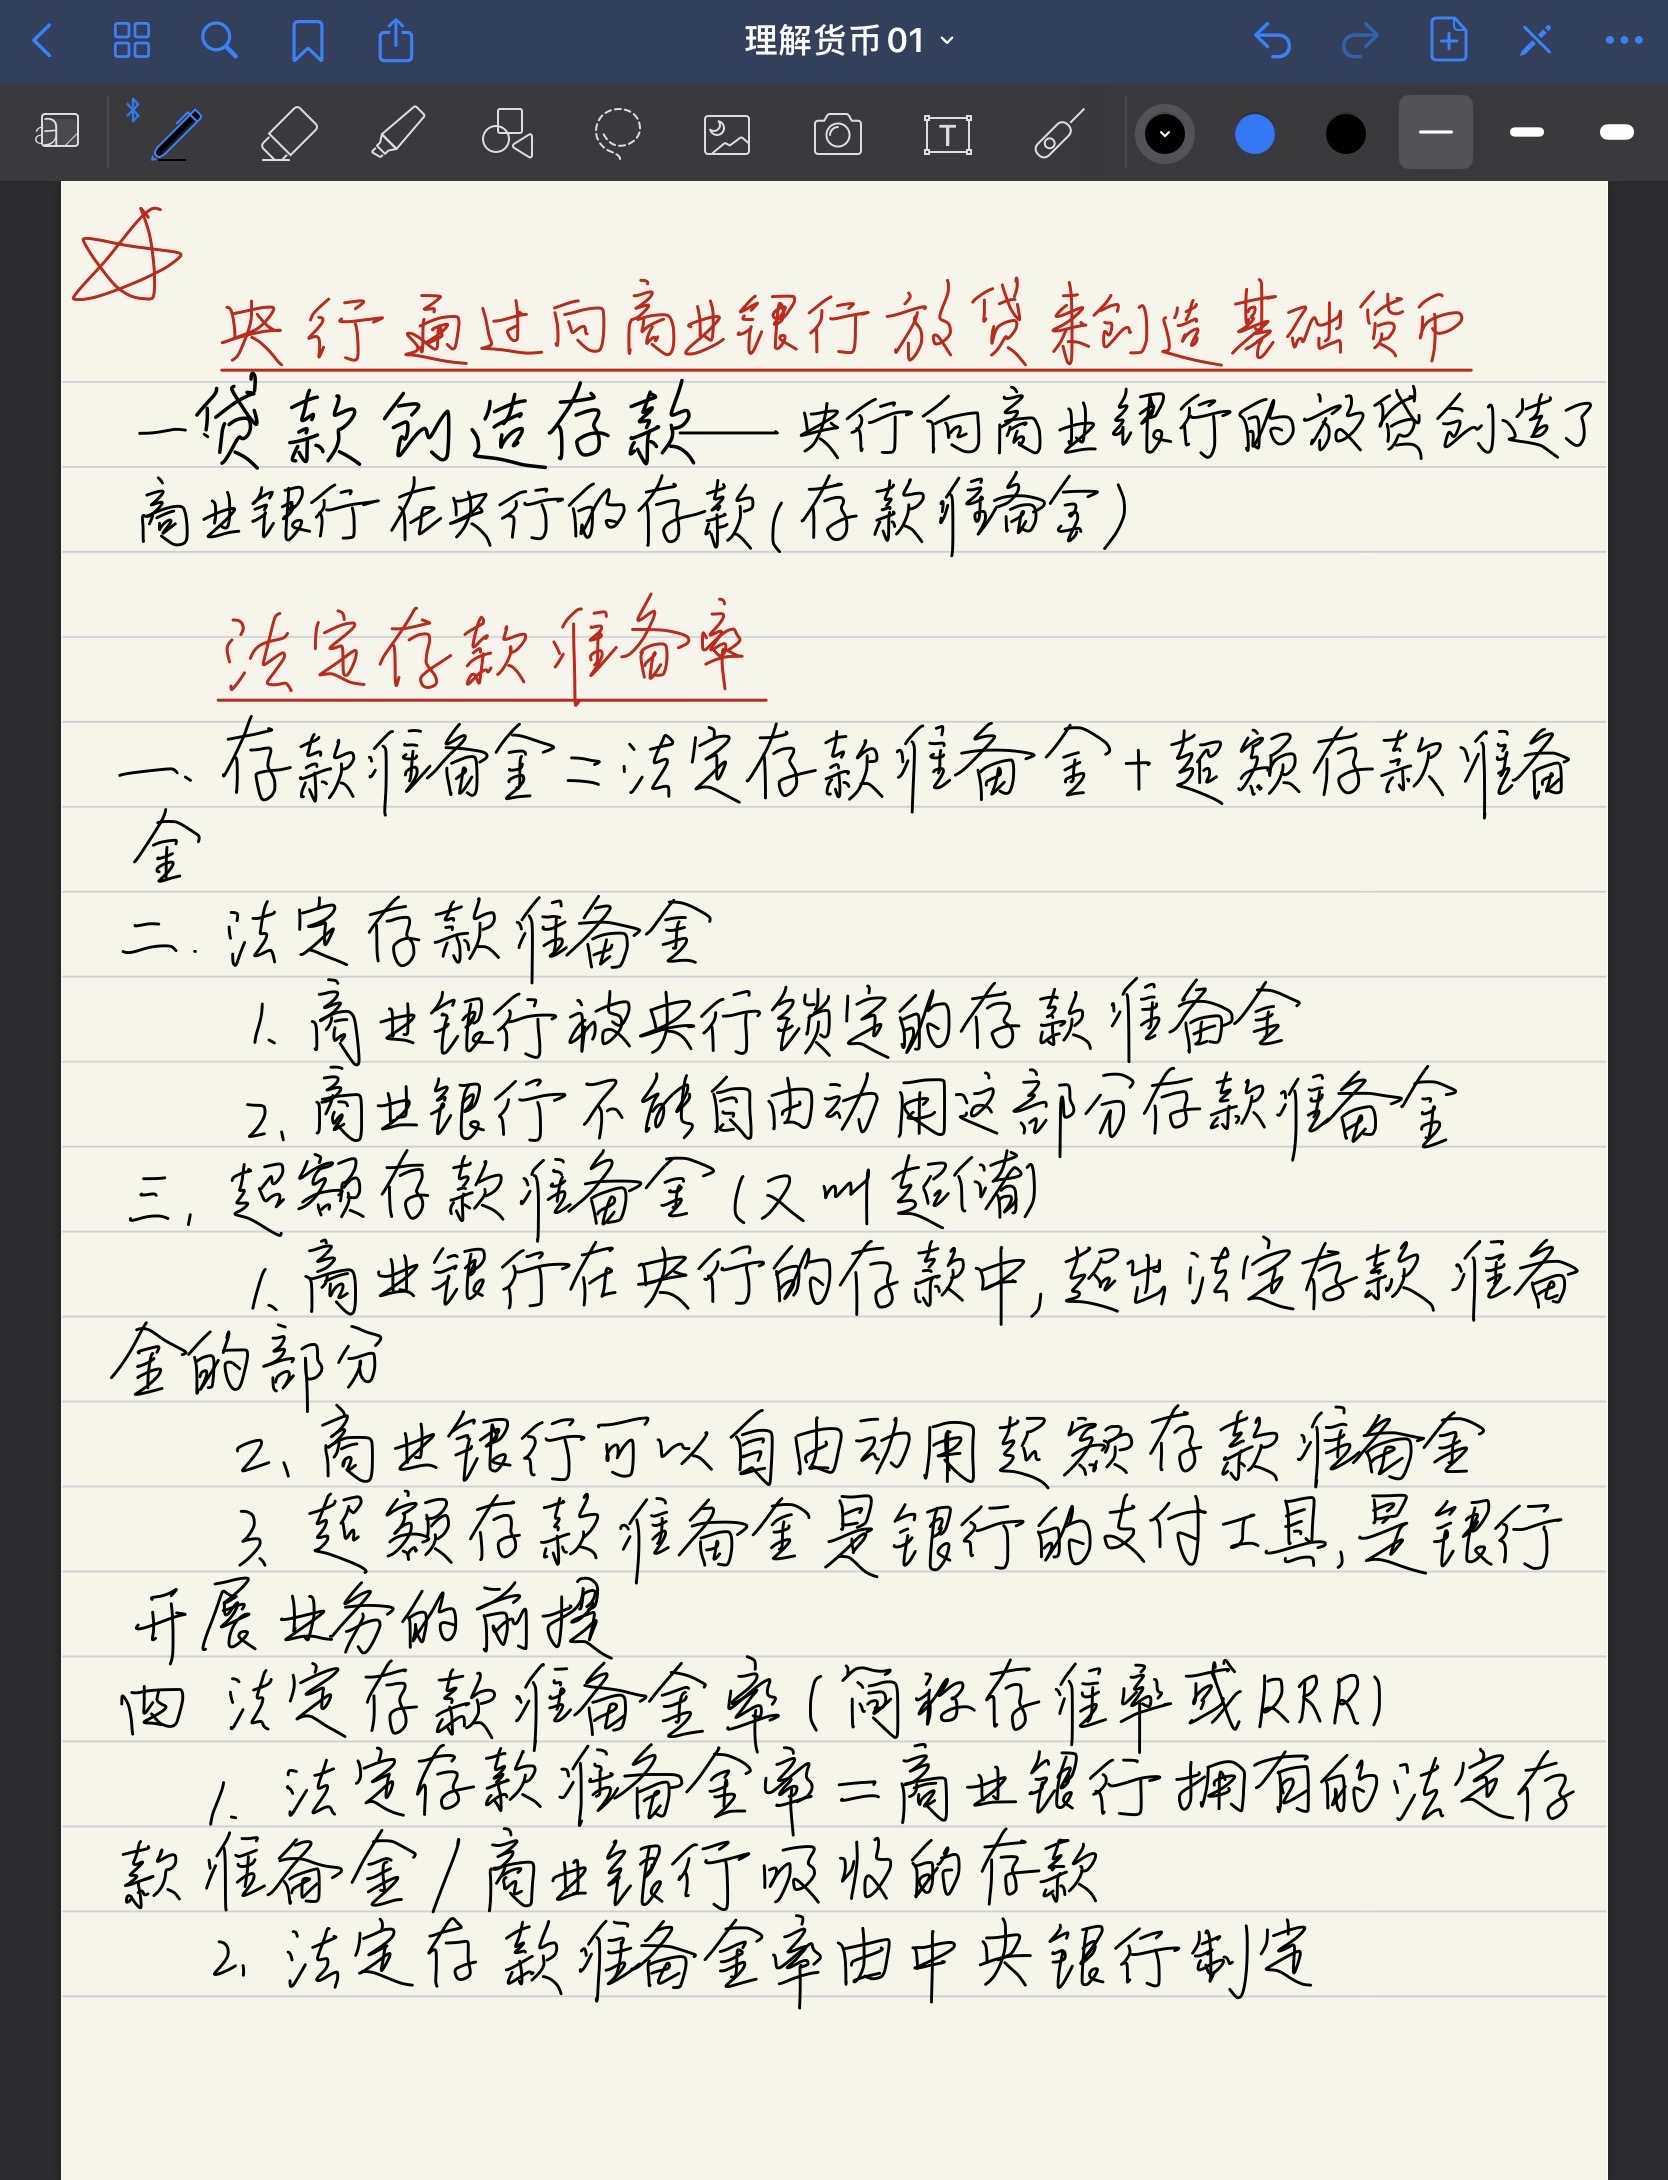 理解货币01
T
央行通过向商业银行放贷来创造基础货币
一贷款创造存款——央行向商业银行的放贷创造了
商业银行在央行的存款(存款准备金)
法定存款准备率
一、存款准备金=法定存款准备金+超额存款准备
金
二.法定存款准备金
1、商业银行被央行锁定的存款准备金
2、商业银行不能自由动用这部分存款准备金
三、超额存款准备金(又叫超储)
1、商业银行在央行的存款中,超出法定存款准备
金的部分
2、商业银行可以自由动用超额存款准备金
3、超额存款准备金是银行的支付工具,是银行
开展业务的前提
四 法定存款准备金率(简称存准率或RRR)
1. 法定存款准备金率=商业银行拥有的法定存
款准备金/商业银行吸收的存款
2、法定存款准备金率由中央银行制定